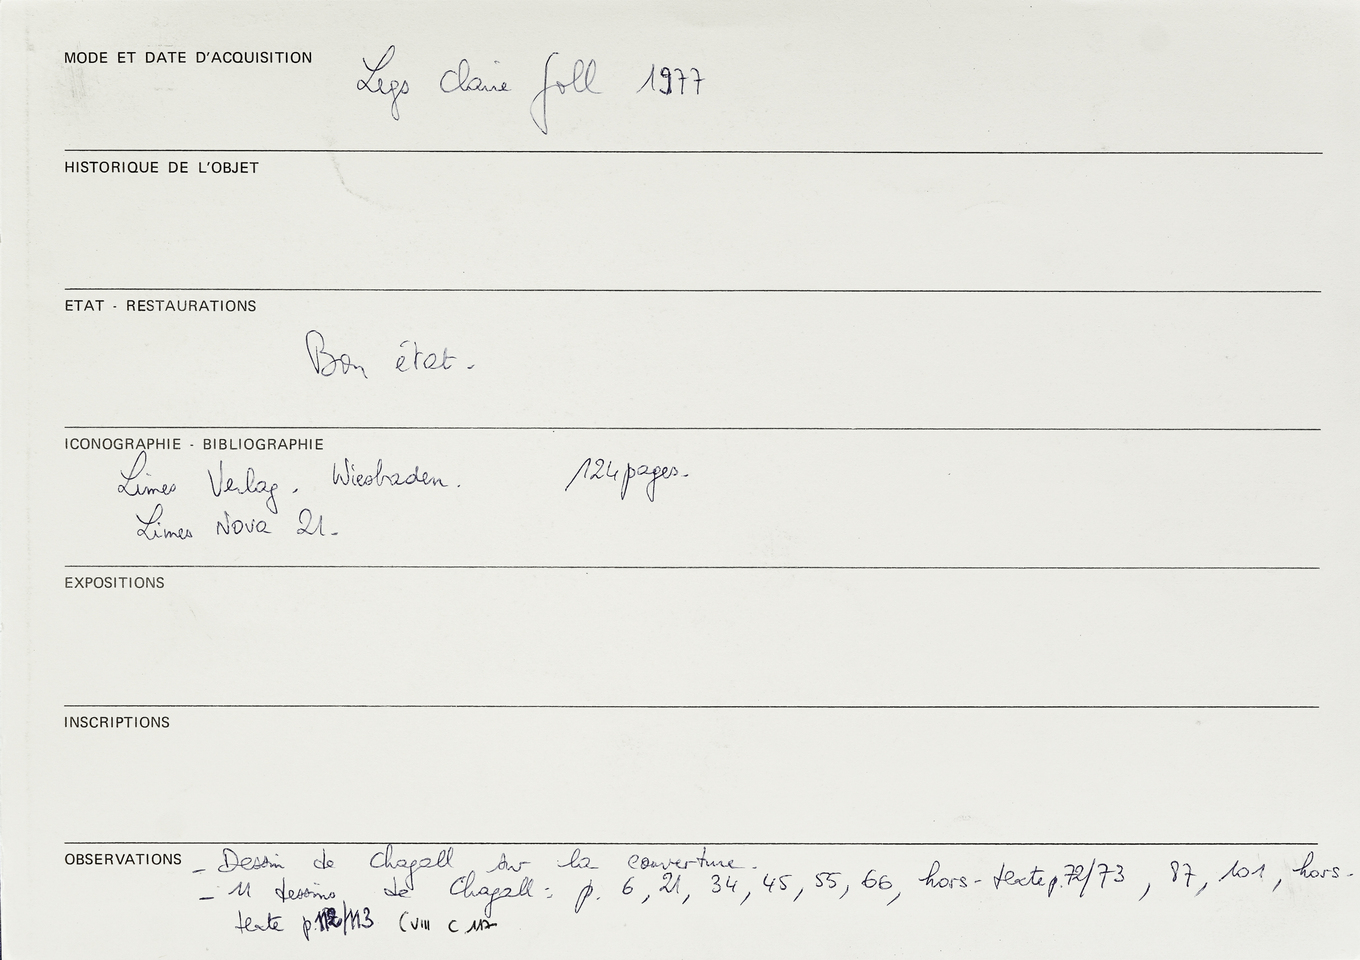 MODE ET DATE D'ACQUISITION
Legs Claire Goll 1977
HISTORIQUE DE L'OBJET
ETAT - RESTAURATIONS
Bon état.
ICONOGRAPHIE - BIBLIOGRAPHIE
Limes Verlag. Wiesbaden. 124 pages.
Limes Nova 21.
EXPOSITIONS
INSCRIPTIONS
OBSERVATIONS - Dessin de Chagall sur la couverture.
- 11 dessins de Chagall : p. 6, 21, 34, 45, 55, 66, hors-texte p. 72/73, 87, 101, hors-
texte p. 112/113 (VIII C